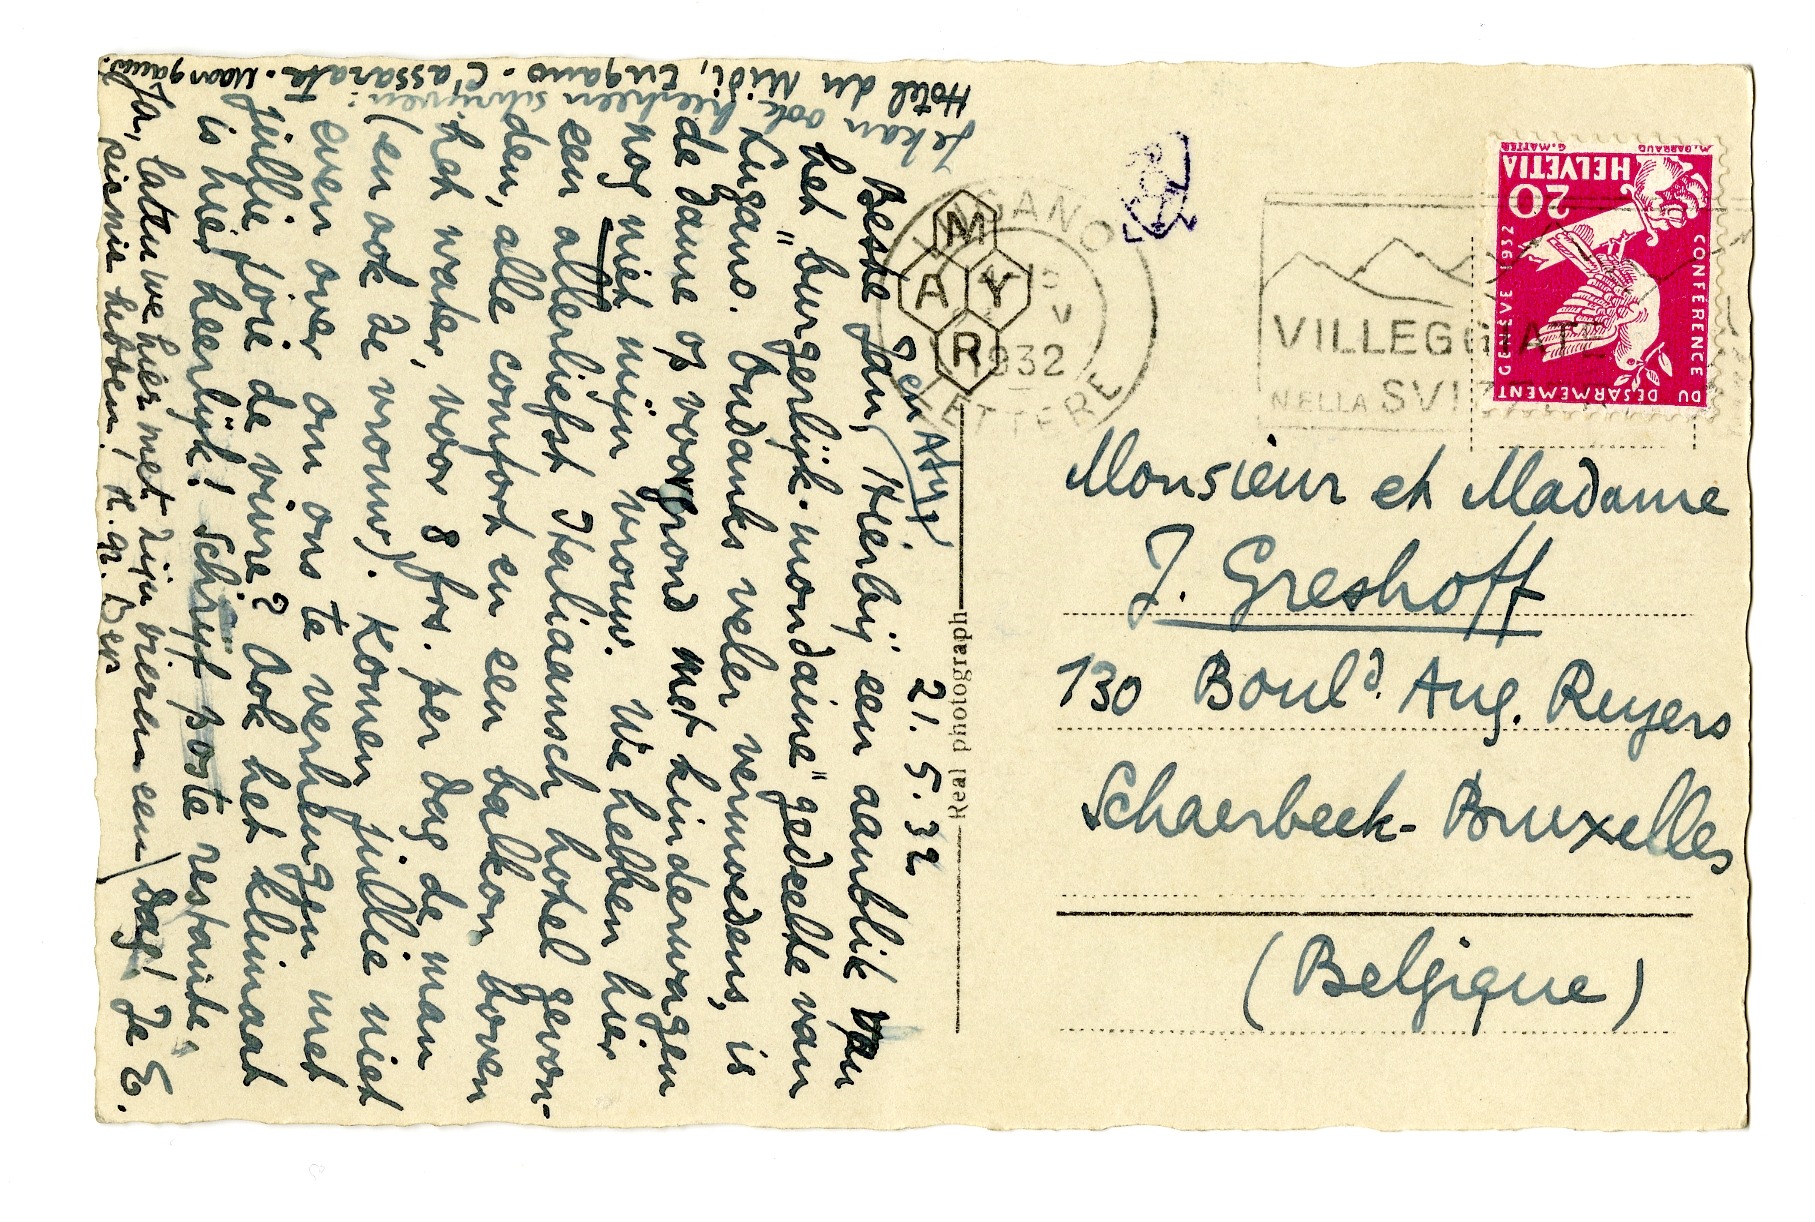 21.5.32
Beste Jan, (en Aty!) Hierbij een aanblik van
het "burgerlijk-mondaine" gedeelte van
Lugano. Ondanks veler vermoedens, is
de dame op voorgrond met kinderwagen
nog niet mijn vrouw. We hebben hier
een allerliefst Italiaansch hotel gevon-
den, alle comfort en een balkon boven
het water, voor 8 frs. per dag de man
(en ook de vrouw). Komen jullie niet
even over om ons te verheugen met
jullie joie de vivre? Ook het klimaat
is hier heerlijk! Schrijf poste restante.
Dag! Je E.
Ja, laten we hier met zijn vieren een
zijn
hebben!
Je kan ook hierheen schrijven:
Hotel du Midi, Lugano-Cassarate.
Real photograph
MAYR
LUGANO
V
1932
LETTERE
VILLEGGIATE
NELLA SVIZZERA
HELVETIA
20
G. MATTER
M. BARRAUD
CONFERENCE
DU DESARMEMENT
GENÈVE 1932
Monsieur et Madame
J. Greshoff
130 Boul^d. Aug. Reyers
Schaerbeek-Bruxelles
(Belgique)